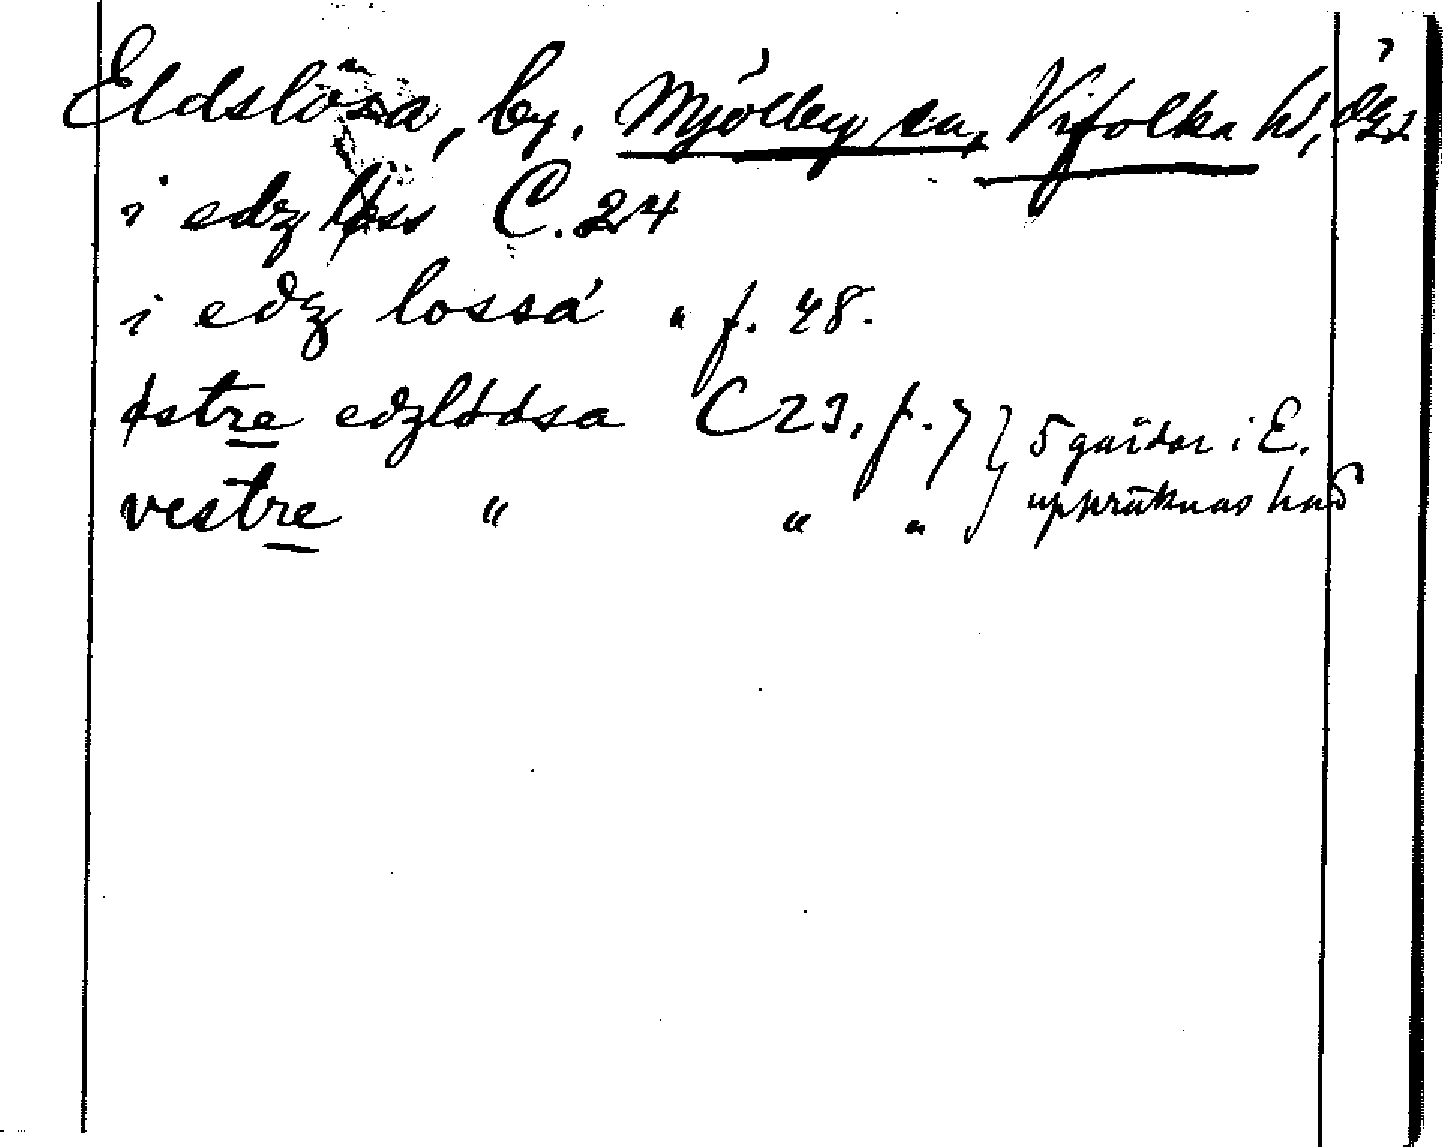 Eldslösa, by. Mjölby sn, Vifolka hd, Ög
i edz løss C. 24
i edz lossa " f. 48.
østre edzlösa C 23, f. 7 } 5 gårdar i E.
vestre " " " } uppräknas här